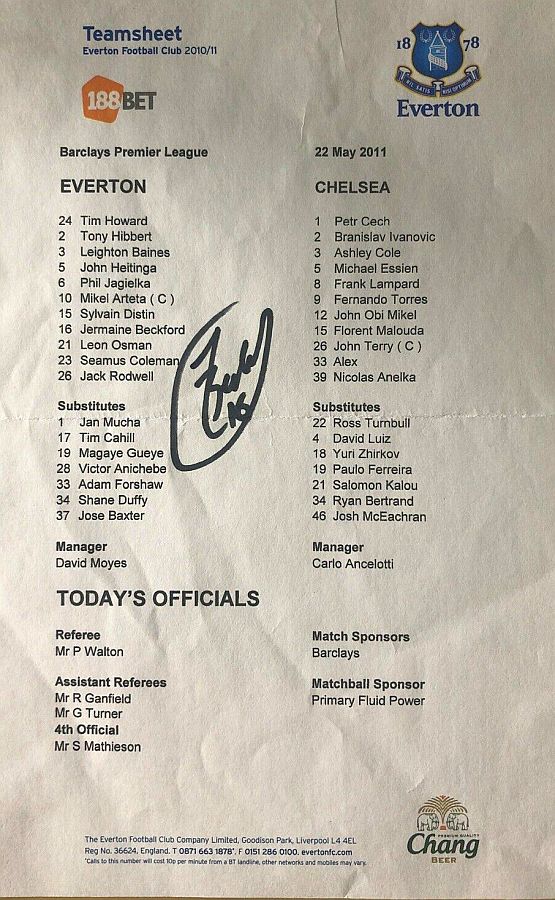 Teamsheet
Everton Football Club 2010/11
188BET
18 78
NIL SATIS NISI OPTIMUM
Everton
Barclays Premier League
22 May 2011
EVERTON
24 Tim Howard
2 Tony Hibbert
3 Leighton Baines
5 John Heitinga
6 Phil Jagielka
10 Mikel Arteta ( C )
15 Sylvain Distin
16 Jermaine Beckford
21 Leon Osman
23 Seamus Coleman
26 Jack Rodwell
Substitutes
1 Jan Mucha
17 Tim Cahill
19 Magaye Gueye
28 Victor Anichebe
33 Adam Forshaw
34 Shane Duffy
37 Jose Baxter
Manager
David Moyes
CHELSEA
1 Petr Cech
2 Branislav Ivanovic
3 Ashley Cole
5 Michael Essien
8 Frank Lampard
9 Fernando Torres
12 John Obi Mikel
15 Florent Malouda
26 John Terry ( C )
33 Alex
39 Nicolas Anelka
Substitutes
22 Ross Turnbull
4 David Luiz
18 Yuri Zhirkov
19 Paulo Ferreira
21 Salomon Kalou
34 Ryan Bertrand
46 Josh McEachran
Manager
Carlo Ancelotti
16
TODAY'S OFFICIALS
Referee
Mr P Walton
Assistant Referees
Mr R Ganfield
Mr G Turner
4th Official
Mr S Mathieson
Match Sponsors
Barclays
Matchball Sponsor
Primary Fluid Power
The Everton Football Club Company Limited, Goodison Park, Liverpool L4 4EL
Reg No. 36624, England. T 0871 663 1878*. F 0151 286 0100. evertonfc.com
*Calls to this number will cost 10p per minute from a BT landline, other networks and mobiles may vary.
PREMIUM QUALITY
Chang
BEER